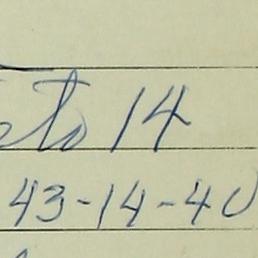 to 14
43-14-40